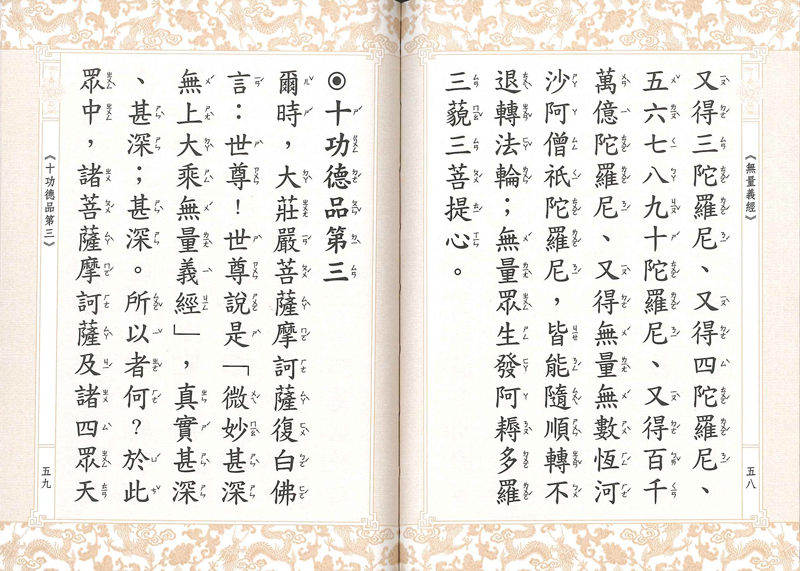 《無量義經》
五八
又得三陀羅尼、又得四陀羅尼、
五六七八九十陀羅尼、又得百千
萬億陀羅尼、又得無量無數恆河
沙阿僧祇陀羅尼，皆能隨順轉不
退轉法輪；無量眾生發阿耨多羅
三藐三菩提心。
◉十功德品第三
爾時，大莊嚴菩薩摩訶薩復白佛
言：世尊！世尊說是「微妙甚深
無上大乘無量義經」，真實甚深
、甚深；甚深。所以者何？於此
眾中，諸菩薩摩訶薩及諸四眾天
《十功德品第三》
五九